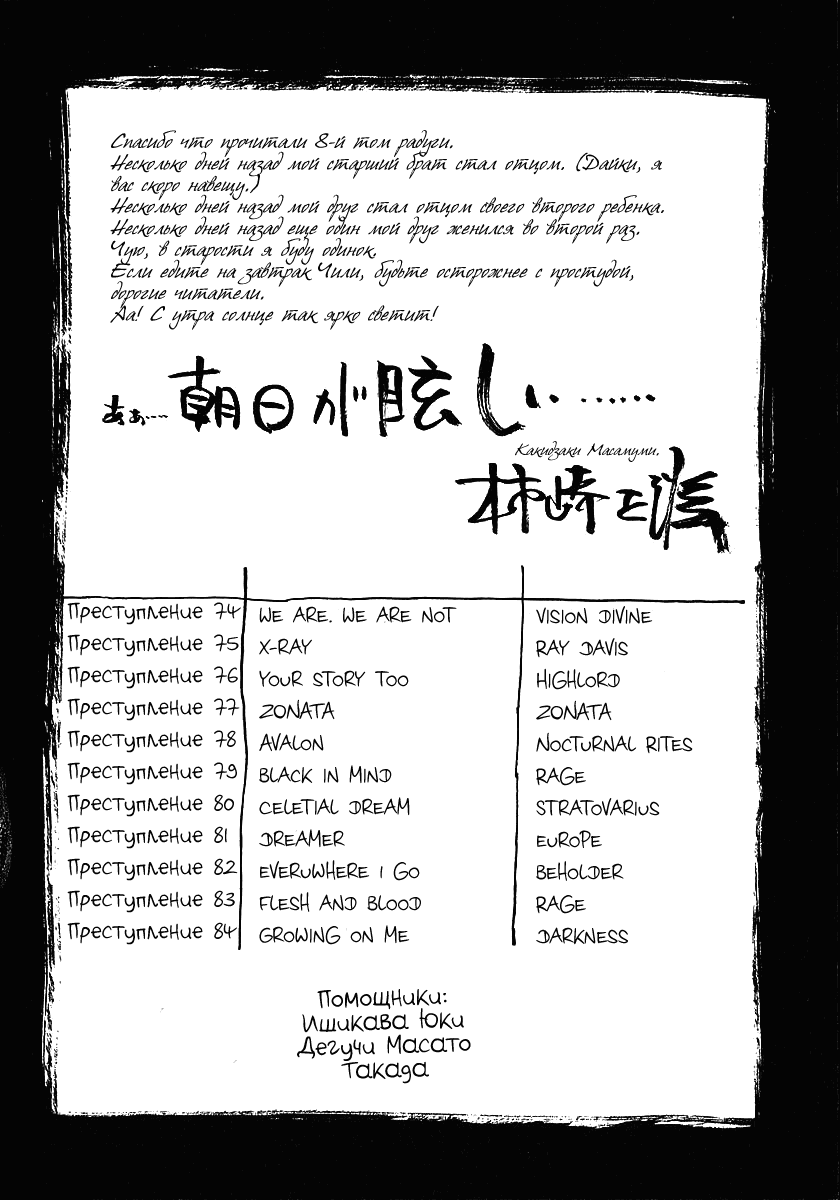 Спасибо что прочитали 8-й том радуги.
Несколько дней назад мой старший брат стал отцом. (Дайки, я
вас скоро навещу.)
Несколько дней назад мой друг стал отцом своего второго ребенка.
Несколько дней назад еще один мой друг женился во второй раз.
Чую, в старости я буду одинок.
Если едите на завтрак Чили, будьте осторожнее с простудой,
дорогие читатели.
Аа! С утра солнце так ярко светит!
ああ… 朝日が眩しい……
Какидзаки Масамуми.
柿崎正澄
Преступление 74 WE ARE. WE ARE NOT VISION DIVINE
Преступление 75 X-RAY RAY DAVIS
Преступление 76 YOUR STORY TOO HIGHLORD
Преступление 77 ZONATA ZONATA
Преступление 78 AVALON NOCTURNAL RITES
Преступление 79 BLACK IN MIND RAGE
Преступление 80 CELETIAL DREAM STRATOVARIUS
Преступление 81 DREAMER EUROPE
Преступление 82 EVERUWHERE I GO BEHOLDER
Преступление 83 FLESH AND BLOOD RAGE
Преступление 84 GROWING ON ME DARKNESS
Помощники:
Ишикава Юки
Дегучи Масато
Такада